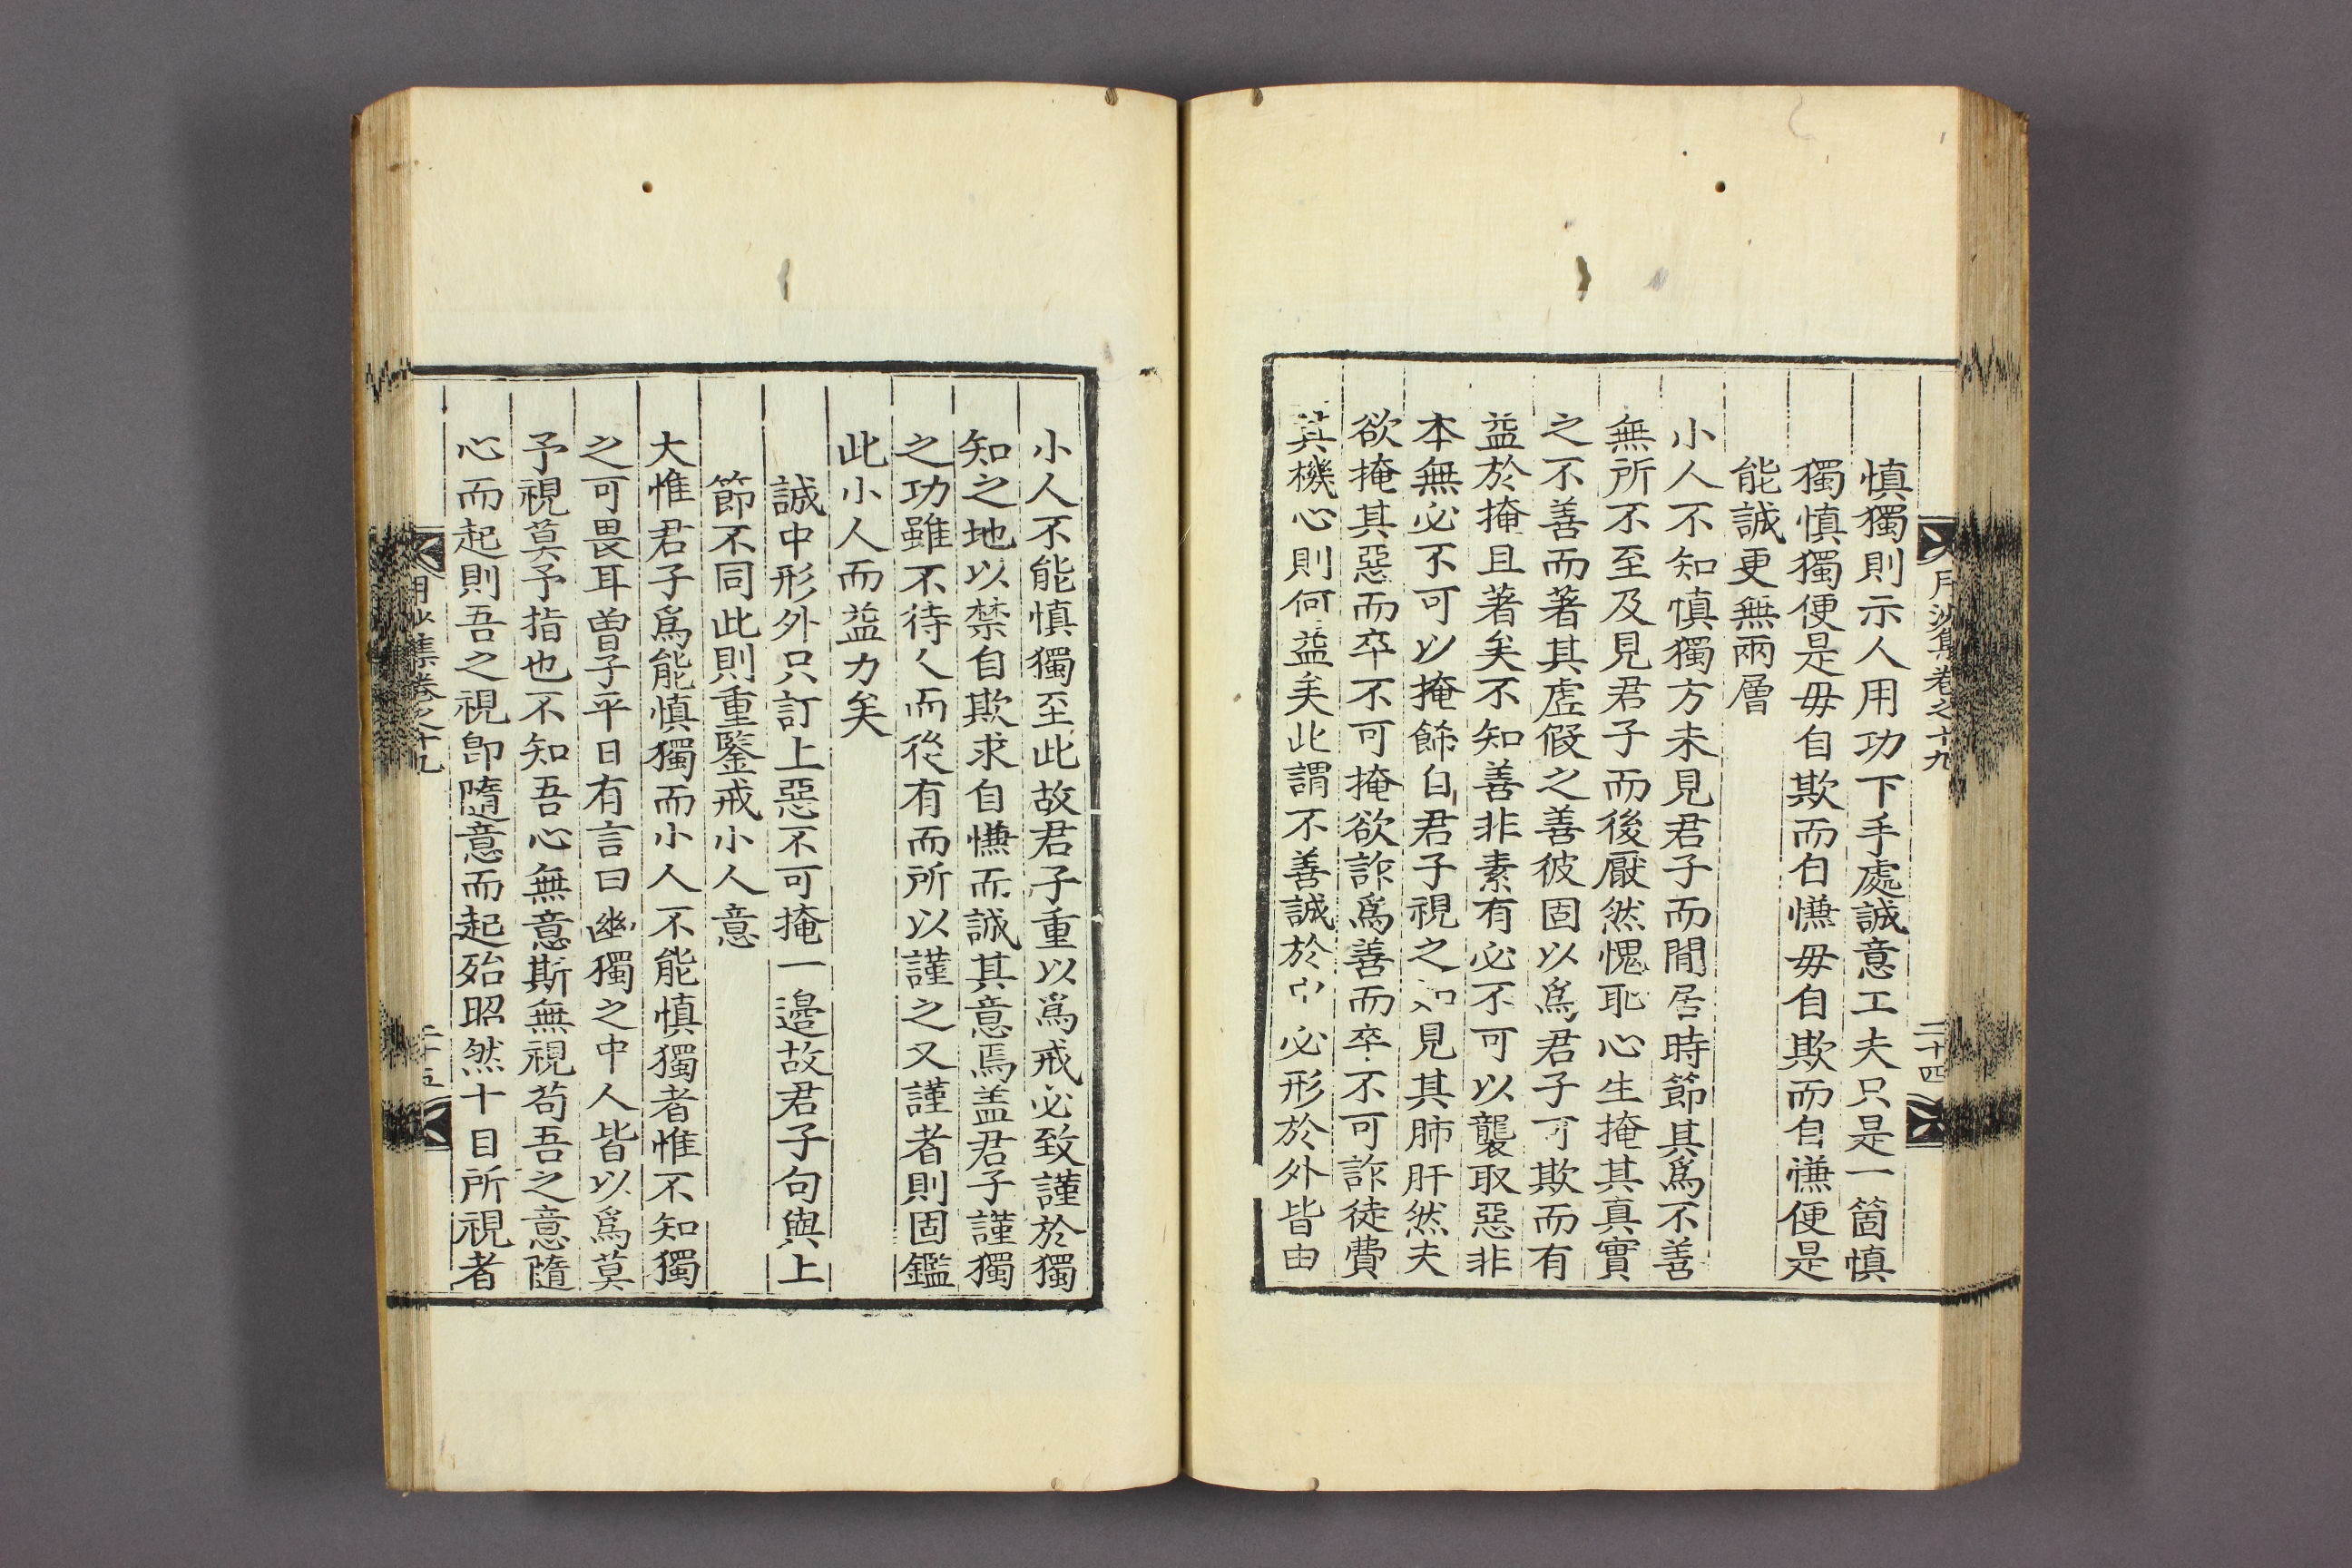 月沙集卷之十九
二十四
慎獨則示人用功下手處誠意工夫只是一箇慎
獨慎獨便是毋自欺而自慊毋自欺而自慊便是
能誠更無兩層
小人不知慎獨方未見君子而閒居時節其爲不善
無所不至及見君子而後厭然愧恥心生掩其真實
之不善而著其虛假之善彼固以爲君子可欺而有
益於掩且著矣不知善非素有必不可以襲取惡非
本無必不可以掩餙白君子視之如見其肺肝然夫
欲掩其惡而卒不可掩欲詐爲善而卒不可詐徒費
其機心則何益矣此謂不善誠於中必形於外皆由
小人不能慎獨至此故君子重以爲戒必致謹於獨
知之地以禁自欺求自慊而誠其意焉盖君子謹獨
之功雖不待人而後有而所以謹之又謹者則固鑑
此小人而益力矣
誠中形外只訂上惡不可掩一邊故君子句與上
節不同此則重鑒戒小人意
大惟君子爲能慎獨而小人不能慎獨者惟不知獨
之可畏耳曾子平日有言曰幽獨之中人皆以爲莫
予視莫予指也不知吾心無意斯無視苟吾之意隨
心而起則吾之視卽隨意而起殆昭然十目所視者
月沙集卷之十九
二十五